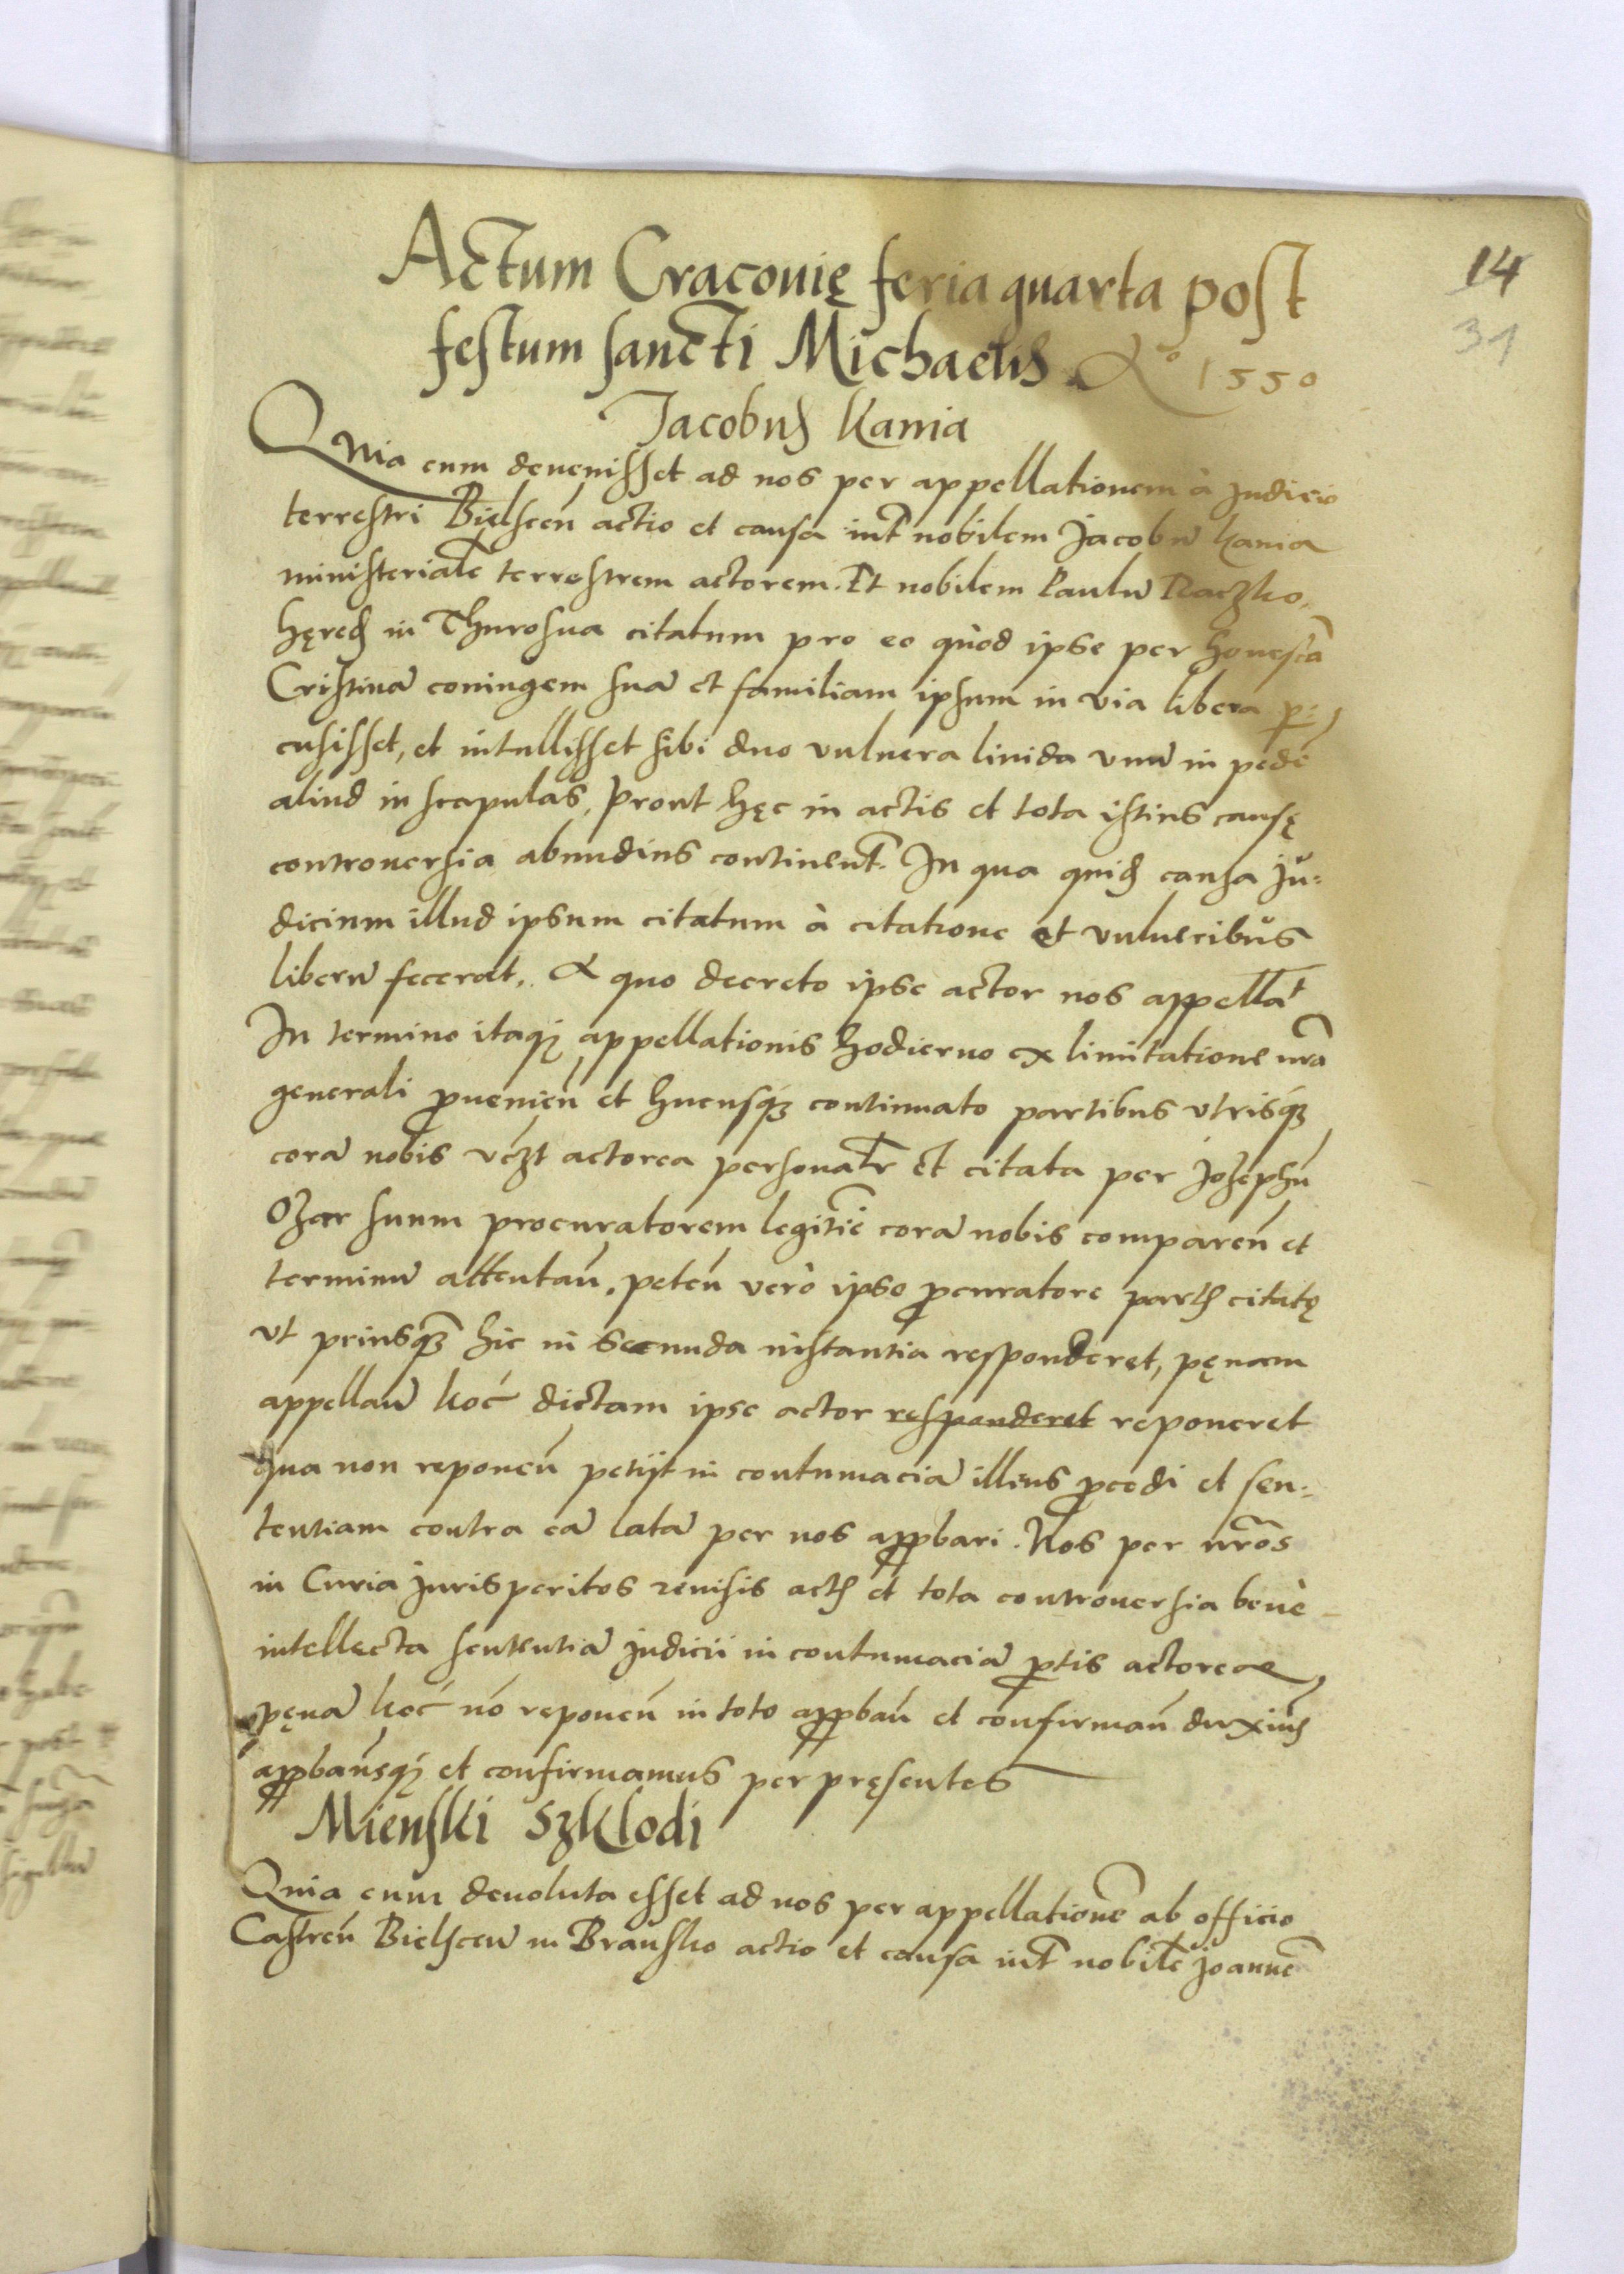 14
31
Actum Cracovię feria quarta post
festum sancti Michaelis A° 1550
Jacobus Kania
Quia cum devenisset ad nos per appellationem à Judicio
terrestri Bielscen̄ actio et causa int̄ nobilem Jacobū Kania
ministerialē terrestrem actorem. Et nobilem Paulū Raczko,
hęred in Thurosna citatum pro eo quòd ipse per honestā
Cristinā coniugem suā et familiam ipsum in via libera per:
cusisset, et intullisset sibi duo vulnera livida unū in pede
aliud in scapulas, Prout hęc in actis et tota istius causę
controversia abundius continent̄. In qua quid causa Ju:
dicium illud ipsum citatum à citatione et vulneribus
liberū fecerat. A quo decreto ipse actor nos appellat
In termino itaqȝ appellationis hodierno ex limitatione nrā
generali provenien̄ et hucusqȝ continuato partibus utrisqȝ
corā nobis vczt actorea personalr̄ et citata per Josephū
Ozar suum procuratorem legitimē corā nobis comparen̄ et
terminū attentan̄, peten̄ verò ipso procuratore partis citatę
ut priusqȝ hic in secunda instantia responderet, pęnam
appellan̄ koć dictam ipse actor responderet reponeret
qua non reponen̄ petijt in contumaciā illius procedi et sen:
tentiam contra eā latā per nos approbari. Nos per nrōs
in Curia Jurisperitos revisis actis et tota controversia benè
intellecta sententiā Judicii in contumaciā partis actoreae
pęnā koć nō reponen̄ in toto approban̄ et confirman̄ duximus
approbamusqȝ et confirmamus per pręsentes
Mienski Szklodi
Quia cum devoluta esset ad nos per appellationē ab officio
Castren̄ Bielscen̄ in Bransko actio et causa int̄ nobilē Joannē